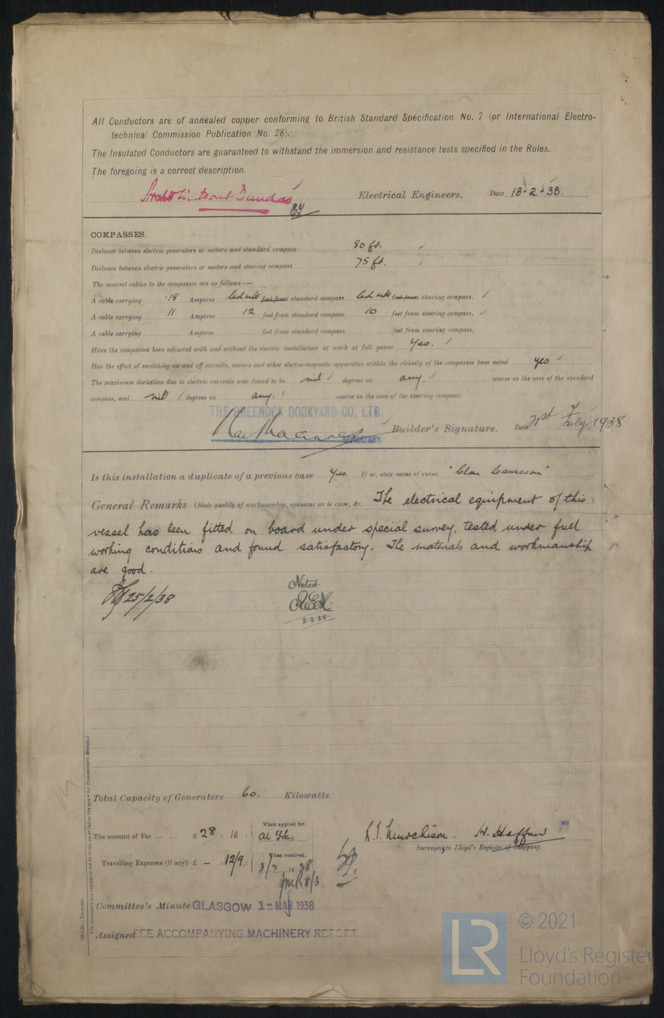 All Conductors are of annealed copper conforming to British Standard Specification No. 7 (or International Electro-
technical Commission Publication No. 28).
The Insulated Conductors are guaranteed to withstand the immersion and resistance tests specified in the Rules.
The foregoing is a correct description.
Dundas Electrical Engineers. Date 18-2-38.
COMPASSES.
Distance between electric generators or motors and standard compass 80 ft.
Distance between electric generators or motors and steering compass 75 ft.
The nearest cables to the compasses are as follows:—
A cable carrying .18 Amperes led into feet from standard compass led into feet from steering compass.
A cable carrying 11 Amperes 12 feet from standard compass 10 feet from steering compass.
A cable carrying Amperes feet from standard compass feet from steering compass.
Have the compasses been adjusted with and without the electric installation at work at full power Yes.
Has the effect of switching on and off circuits, motors and other electro-magnetic apparatus within the vicinity of the compasses been noted yes
The maximum deviation due to electric currents was found to be nil degrees on any. course in the case of the standard
compass, and nil degrees on any. course in the case of the steering compass.
THE GREENOCK DOCKYARD CO. LTD.
Builder's Signature. Date 21st Feby. 1938
Is this installation a duplicate of a previous case Yes If so, state name of vessel "Clan Cameron"
General Remarks (State quality of workmanship, opinions as to class, &c. The electrical equipment of this
vessel has been fitted on board under special survey, tested under full
working conditions and found satisfactory. The materials and workmanship
are good.
25/2/38
Noted.
Total Capacity of Generators 60. Kilowatts.
The amount of Fee £ 28 : 10
When applied for,
Travelling Expenses (if any) £ - : 12/9.
When received,
8/3.
H.
Surveyors to Lloyd's Register of Shipping.
Committee's Minute GLASGOW 1 - MAR 1938
Assigned SEE ACCOMPANYING MACHINERY REPORT
LR
© 2021
Lloyd's Register
Foundation